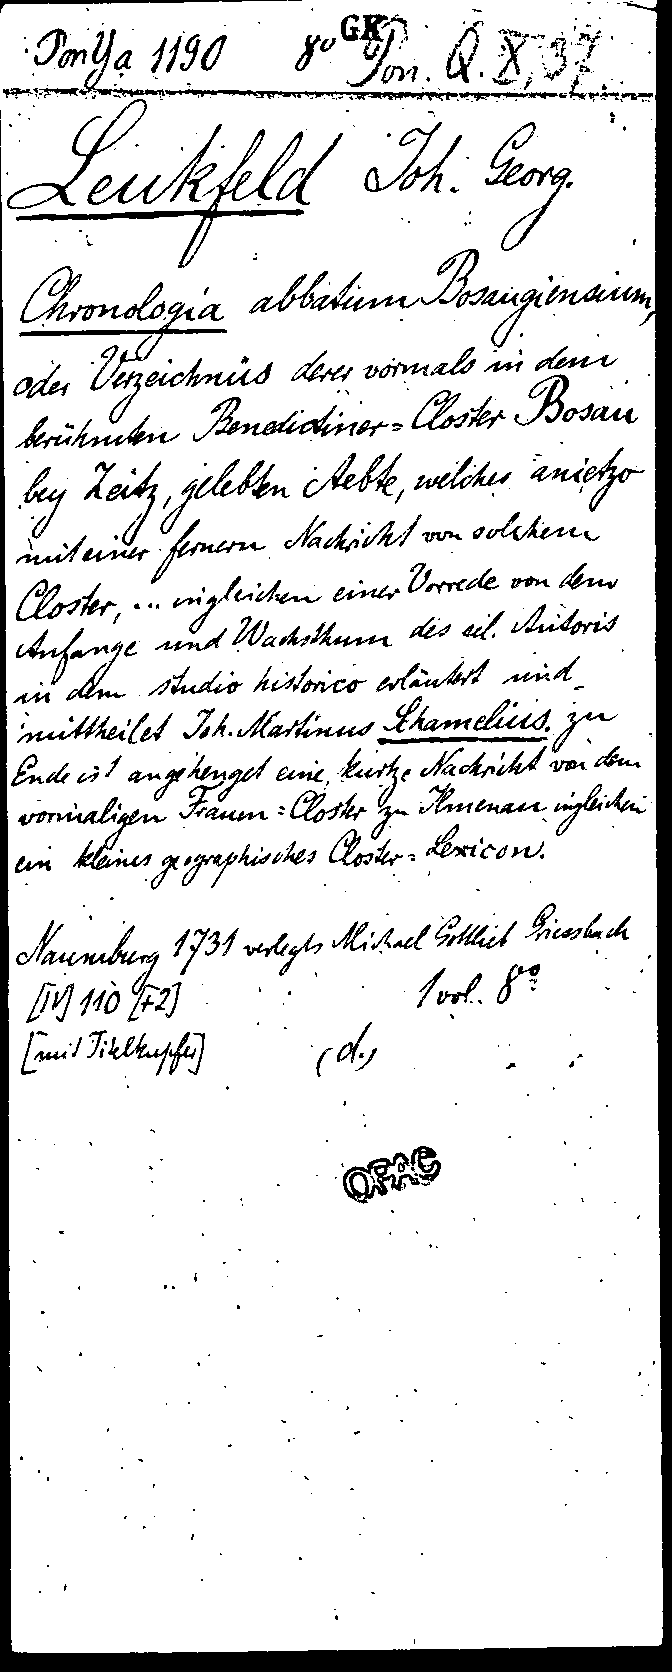 Pon Ya 1190 8° GK Pon. Q. X, 37
Leukfeld Joh. Georg.
Chronologia abbatum Bosaugiensium,
oder Verzeichnüs derer vormals in dem
berühmten Benedictiner=Closter Bosau
bey Zeitz, gelebten Aebte, welches anietzo
mit einer fernern Nachricht von solchem
Closter, ... ingleichen einer Vorrede von dem
Anfange und Wachsthum des sel. Autoris
in dem studio historico erläutert und
mittheilet Joh. Martinus Schamelius. zu
Ende ist angehenget eine kurtze Nachricht von dem
vormaligen Frauen=Closter zu Ilmenau ingleichen
ein kleines geographisches Closter=Lexicon.
Naumburg 1731 verlegts Michael Gottlieb Griessbach
[IV] 110 [+2] 1 vol. 8°
[mit Titelkupfer] (d.)
OFAC